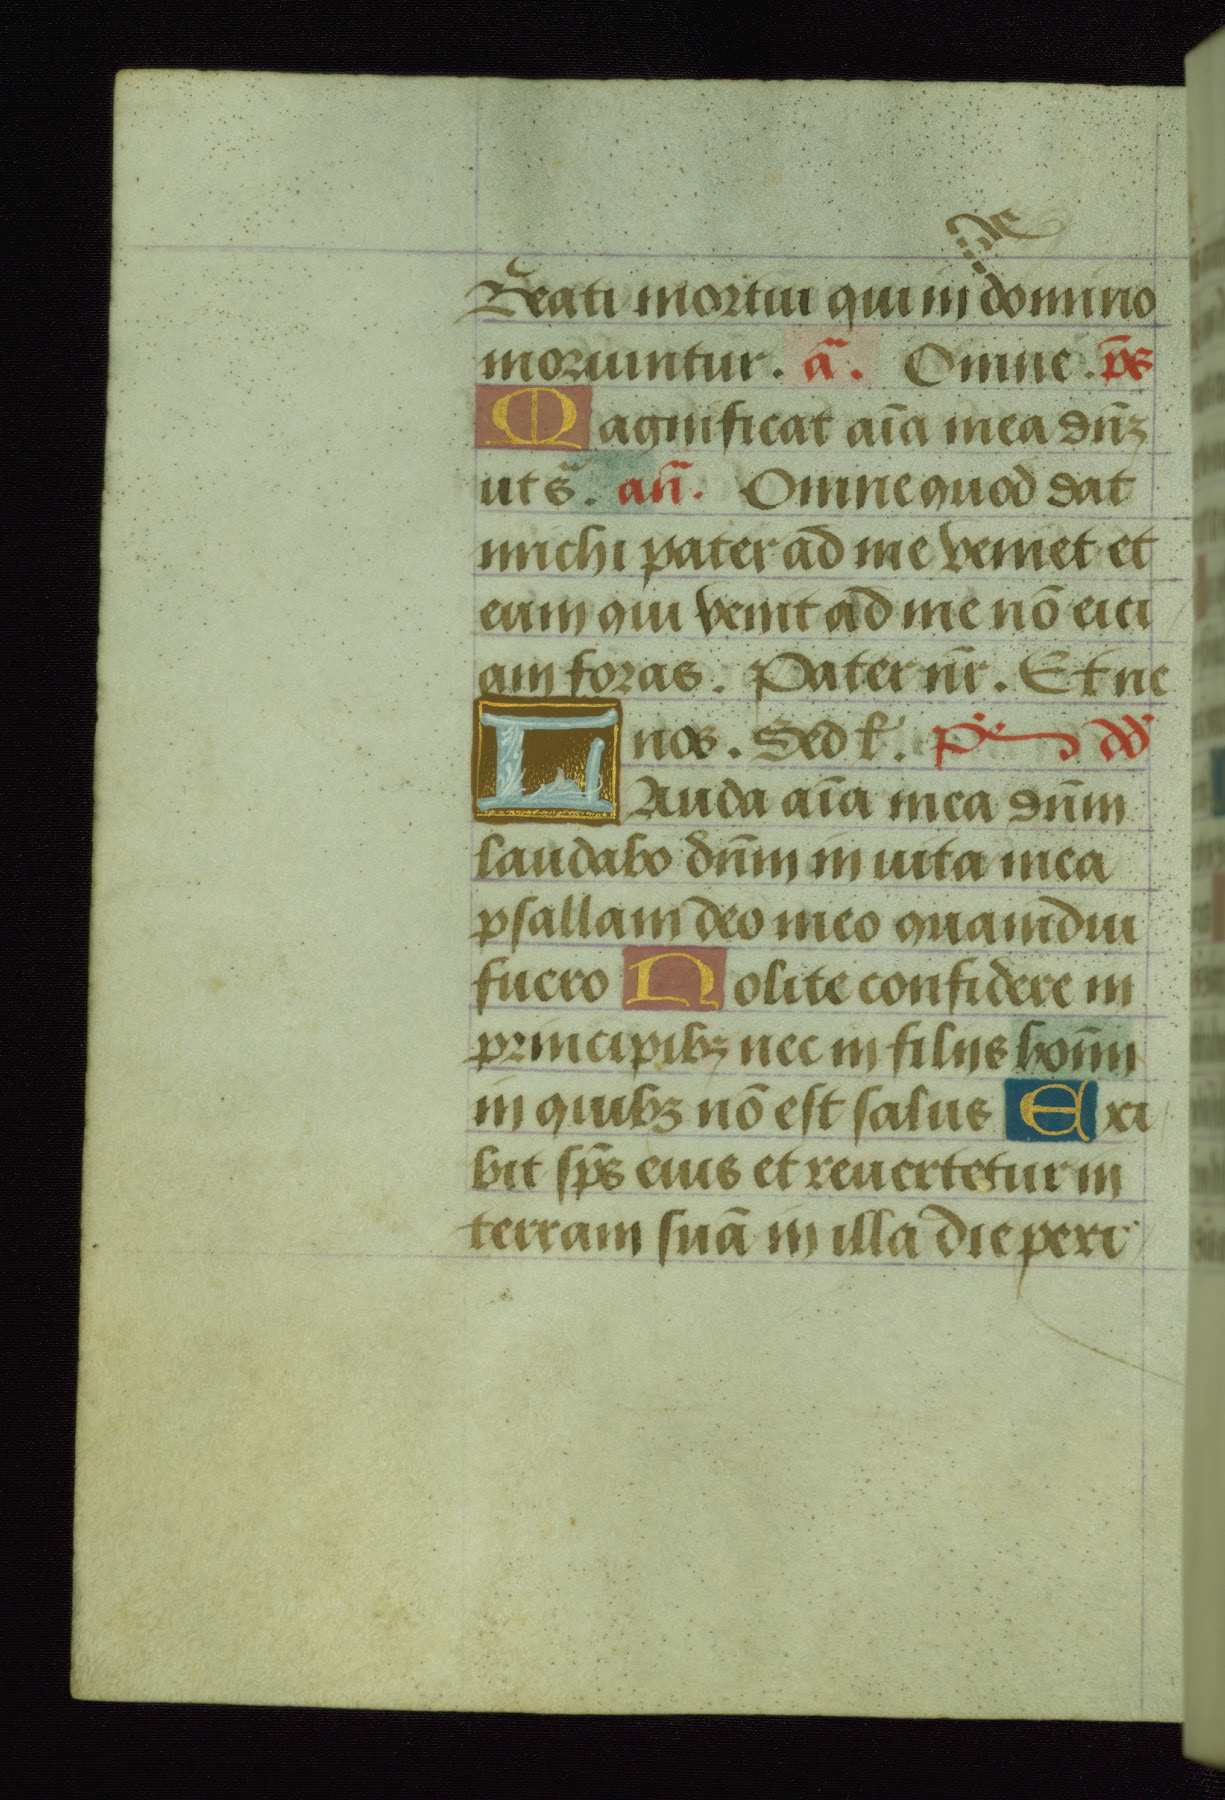 Beati mortui qui in domino
moriuntur. a͞. Omne. p̄s
Magnificat aīa mea dn̄ʒ
ut s͞. an̄. Omne quod dat
michi pater ad me veniet et
eum qui venit ad me nō eici
am foras. Pater nr̄. Et ne
nos. Sed l̄. ps dd
Lauda aīa mea dūm
laudabo dn̄m in uita mea
psallam deo meo quamdiu
fuero Nolite confidere in
principibʒ nec in filijs hoīm
in quibʒ nō est salus Exi
bit sp̄s eius et reuertetur in
terram suā in illa die peri